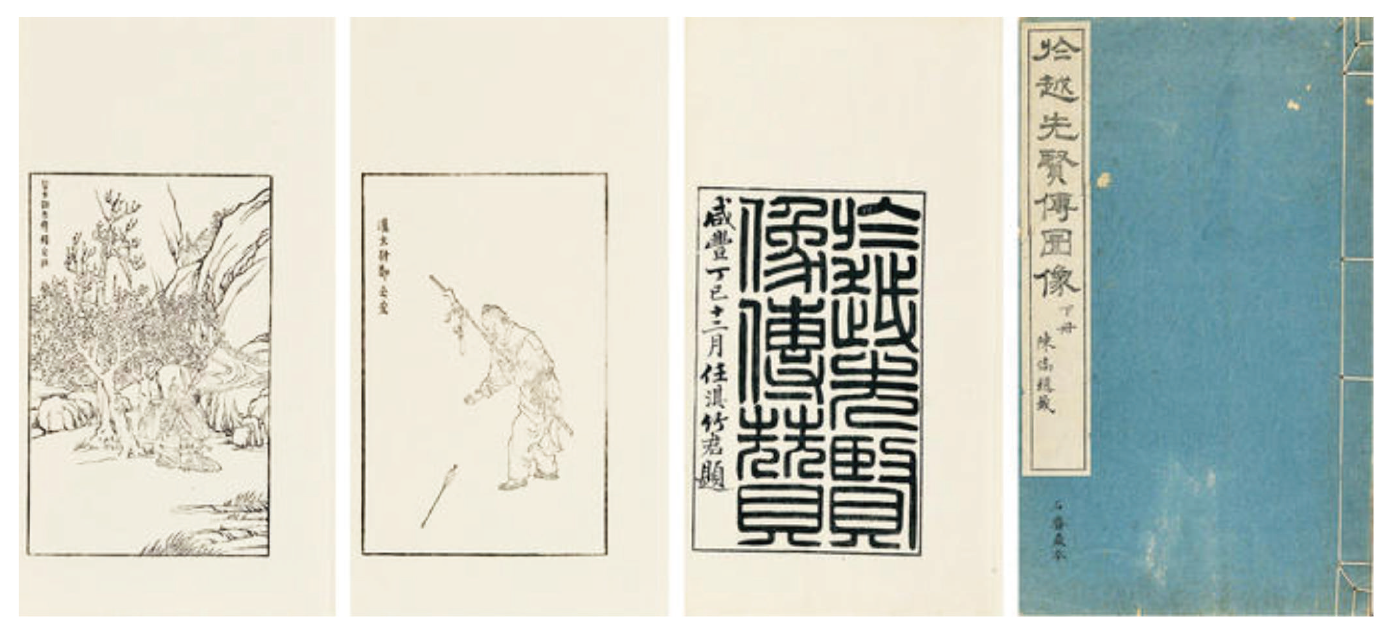 於越先賢傳圖像
下冊
於越先賢
像傳贊
咸豐丁巳十二月任淇竹君題
漢太尉鄭公宏